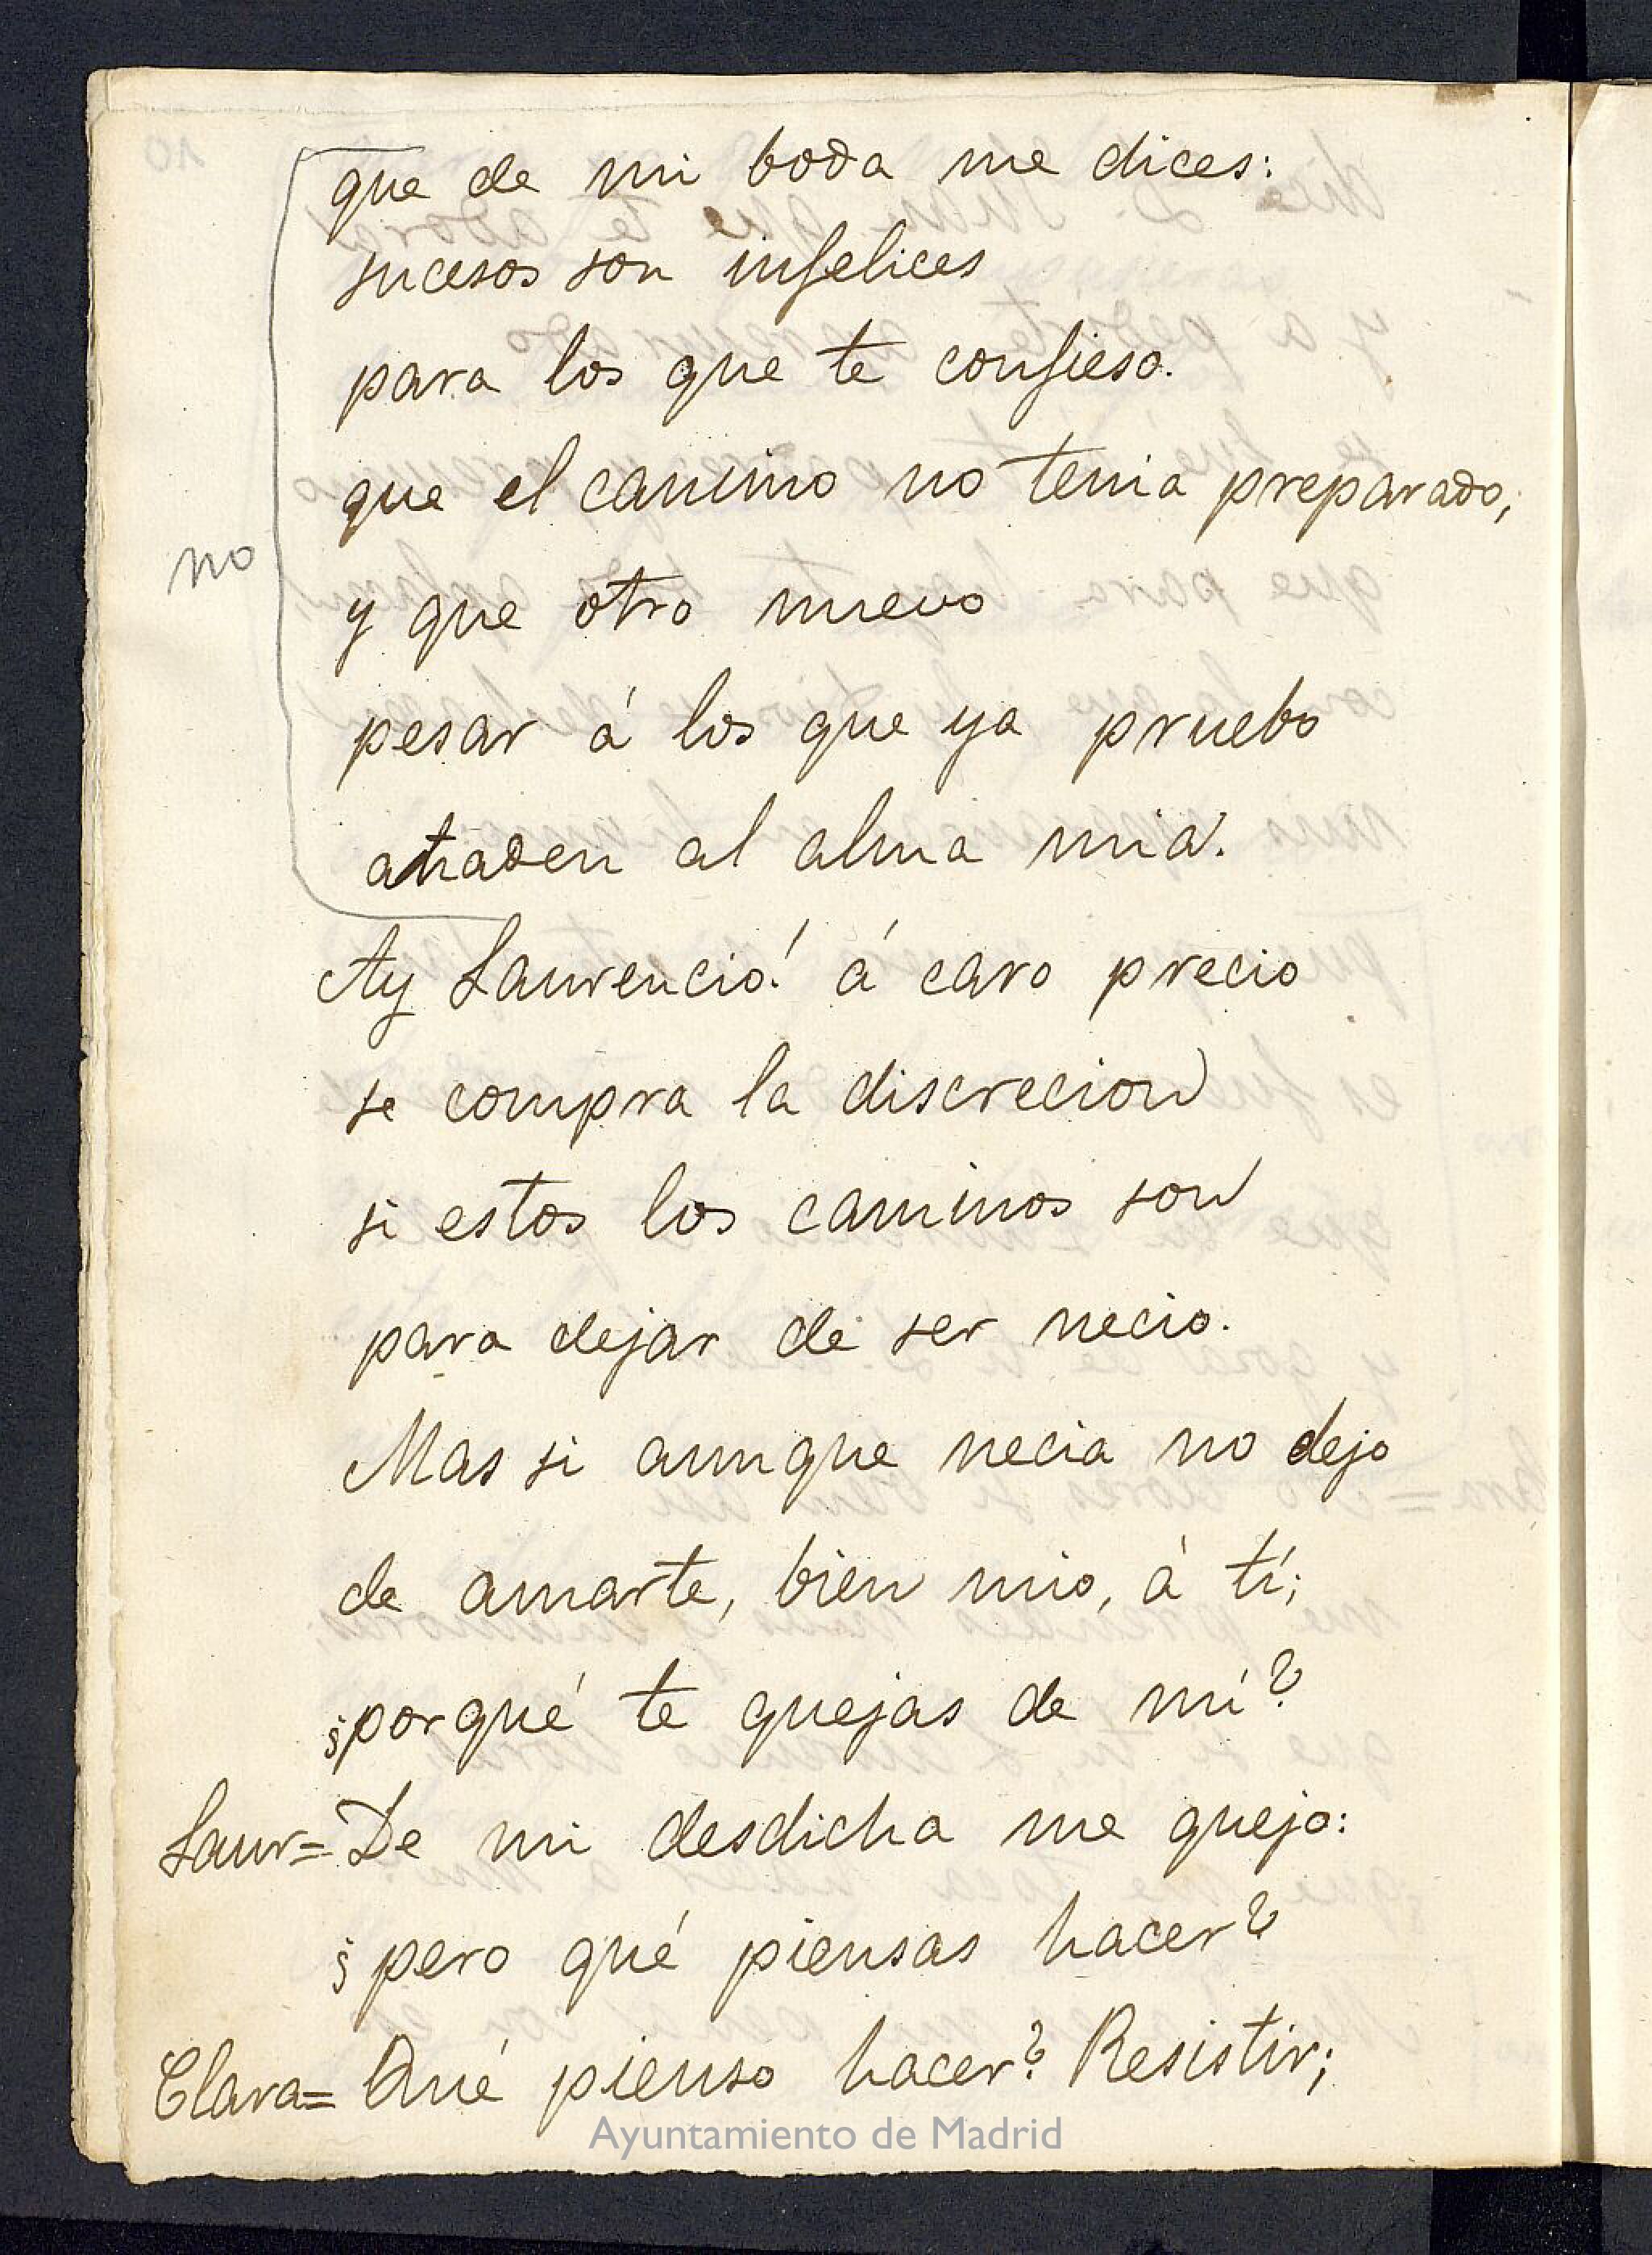 que de mi boda me dices:
sucesos son infelices
para los que te confieso.
que el camino no tenia preparado,
no
y que otro nuevo
pesar á los que ya pruebo
añaden al alma mia.
Ay Laurencio! á caro precio
se compra la discrecion
si estos los caminos son
para dejar de ser necio.
Mas si aunque necia no dejo
de amarte, bien mio, á tí;
¿porqué te quejas de mí?
Laur= De mi desdicha me quejo:
¿pero qué piensas hacer?
Clara= Qué pienso hacer? Resistir;
Ayuntamiento de Madrid